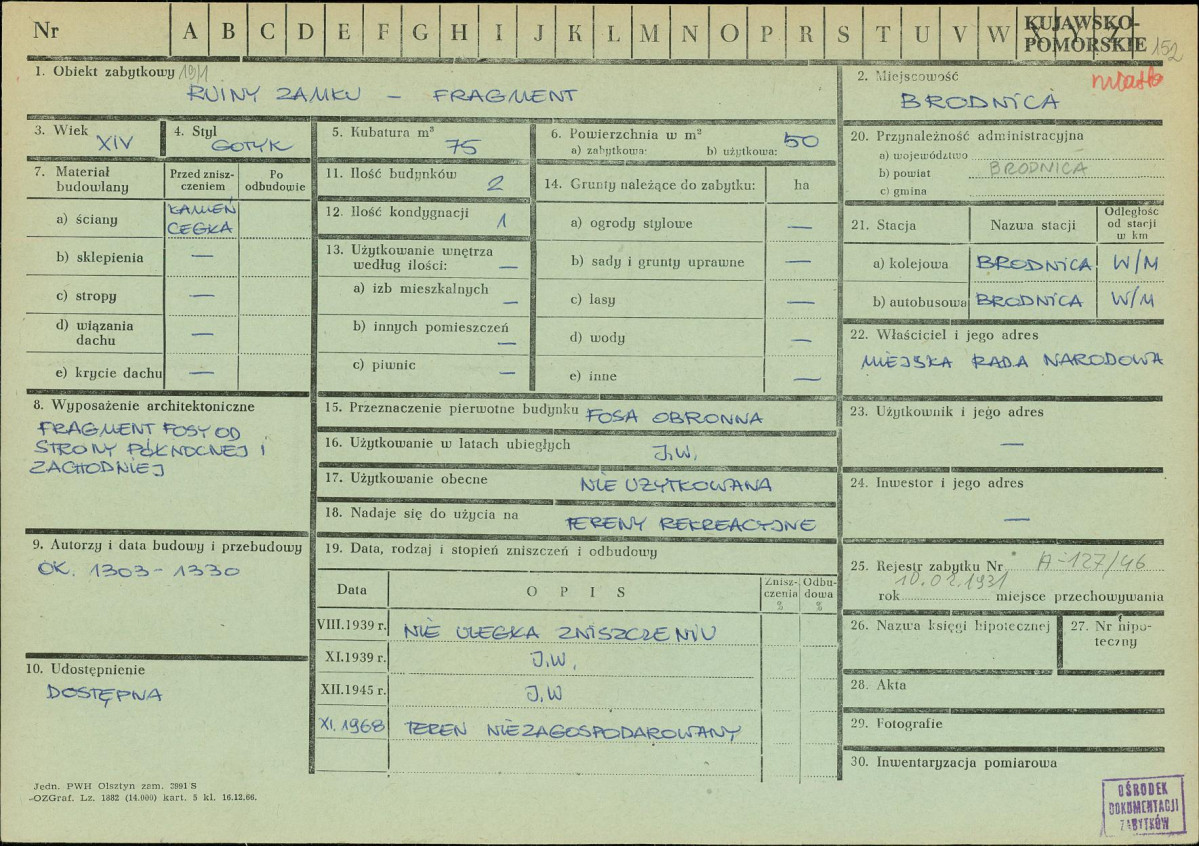 Nr A B C D E F G H I J K L M N O P R S T U V W X Y Z
KUJAWSKO-
POMORSKIE 152
1. Obiekt zabytkowy 19/1
RUINY ZAMKU – FRAGMENT
2. Miejscowość miasto
BRODNICA
3. Wiek
XIV
4. Styl
GOTYK
5. Kubatura m³
75
6. Powierzchnia w m²
a) zabytkowa: b) użytkowa: 50
7. Materiał
budowlany
Przed znisz-
czeniem
Po
odbudowie
a) ściany KAMIEŃ
CEGŁA
b) sklepienia —
c) stropy —
d) wiązania
dachu —
e) krycie dachu —
8. Wyposażenie architektoniczne
FRAGMENT FOSY OD
STRONY PÓŁNOCNEJ I
ZACHODNIEJ
9. Autorzy i data budowy i przebudowy
OK. 1303-1330
10. Udostępnienie
DOSTĘPNA
11. Ilość budynków
2
12. Ilość kondygnacji
1
13. Użytkowanie wnętrza
według ilości: —
a) izb mieszkalnych
—
b) innych pomieszczeń
—
c) piwnic —
14. Grunty należące do zabytku: ha
a) ogrody stylowe —
b) sady i grunty uprawne —
c) lasy —
d) wody —
e) inne —
15. Przeznaczenie pierwotne budynku FOSA OBRONNA
16. Użytkowanie w latach ubiegłych J.W.
17. Użytkowanie obecne NIE UŻYTKOWANA
18. Nadaje się do użycia na TERENY REKREACYJNE
19. Data, rodzaj i stopień zniszczeń i odbudowy
Data O P I S Znisz-
czenia
%
Odbu-
dowa
%
VIII.1939 r. NIE ULEGŁA ZNISZCZENIU
XI.1939 r. J.W.
XII.1945 r. J.W
XI.1968 TEREN NIEZAGOSPODAROWANY
20. Przynależność administracyjna
a) województwo
b) powiat BRODNICA
c) gmina
21. Stacja Nazwa stacji Odległość
od stacji
w km
a) kolejowa BRODNICA W/M
b) autobusowa BRODNICA W/M
22. Właściciel i jego adres
MIEJSKA RADA NARODOWA
23. Użytkownik i jego adres
—
24. Inwestor i jego adres
—
25. Rejestr zabytku Nr A-127/46
rok 10.02.1931 miejsce przechowywania
26. Nazwa księgi hipotecznej
27. Nr hipo-
teczny
28. Akta
29. Fotografie
30. Inwentaryzacja pomiarowa
Jedn. PWH Olsztyn zam. 3991 S
-OZGraf. Lz. 1882 (14.000) kart. 5 kl. 16.12.66.
OŚRODEK
DOKUMENTACJI
ZABYTKÓW